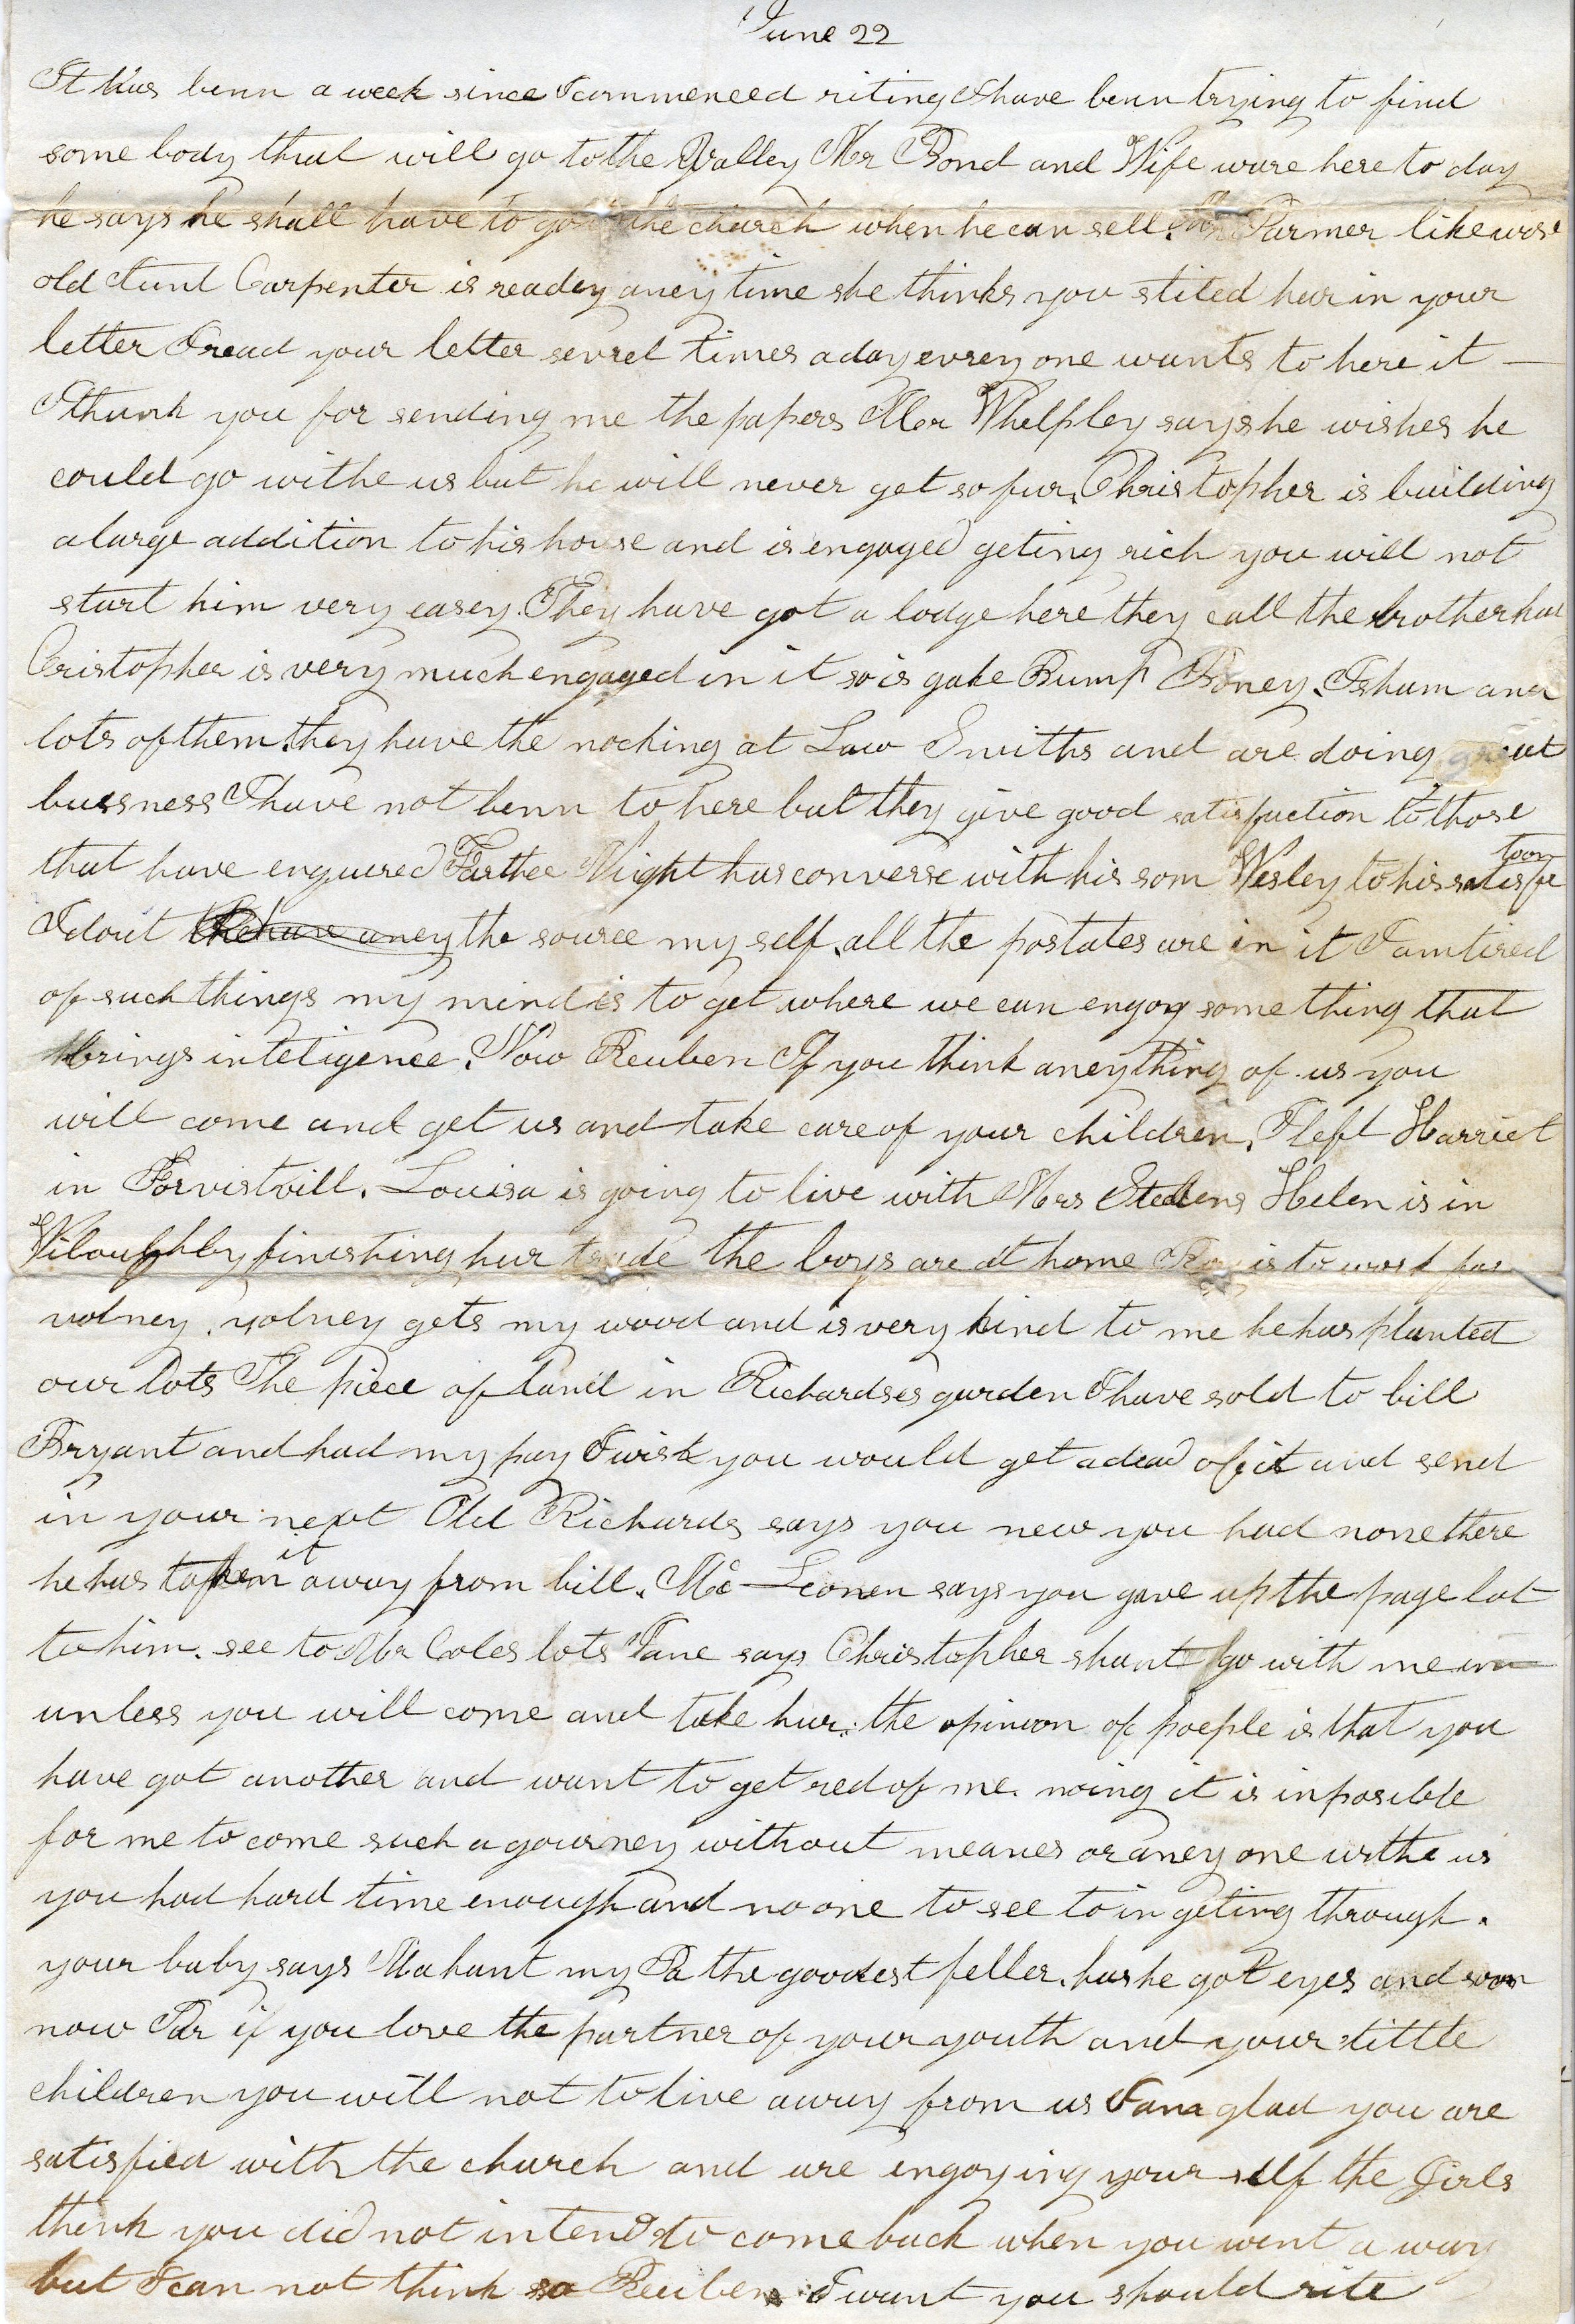 June 22
It has benn a week since I commenced riting I have benn trying to find
some body that will go to the Valley Mr Bond and Wife ware here to day
he says he shall have to go the church when he can sell. Mr Parmer likewise
old Aunt Carpenter is readey aney time she thinks you stited hur in your
letter I read your letter sevrel times a day evrey one wants to here it —
I thank you for sending me the papers Mr Whelpley says he wishes he
could go withe us but he will never get so fur, Christopher is building
a large addition to his house and is engaged geting rich you will not
start him very easey. They have got a lodge here they call the
Cristopher is very much engaged in it so is gabe Bump Boney. Isham and
lots of them. they have the nocking at Law Smiths and are doing great
bussness I have not benn to here but they give good satisfaction to those
that have enquired Farther Night has converse with his som Wesley to his
I dout the source my self, all the postates are in it I am tired
of such things my mind is to get where we can engoy some thing that
brings inteligence. Now Reuben If you think aney thing of us you
will come and get us and take care of your children, I left Harriet
in Forristvill. Louisa is going to live with Mrs Helen is in
Wiloughby finishing hur trade the boys are at home is to work for
volney, volney gets my wood and is very kind to me he has planted
our lots The piece of land in Richardses garden I have sold to bill
Bryant and had my pay I wish you would get a dead of it and send
in your next Old Richards says you new you had none there
he has taken it away from bill. Mc Leonen says you gave up the page lot
to him. see to Mr Coles lots Jane says Christopher shant go with me
unless you will come and take hur. the opinion of poeple is that you
have got another and want to get red of me. noing it is inposible
for me to come such a gourney without meanes or aney one withe us
you had hard time enough and no one to see to in geting through.
your baby says Ma hant my Pa the goodest feller. has he got eyes and soon
now Par if you love the partner of your youth and your little
children you will not to live away from us I am glad you are
satisfied with the church and are engoying your self the Girls
think you did not intend to come back when you went a way
but I can not think so Reuben I want you should rite